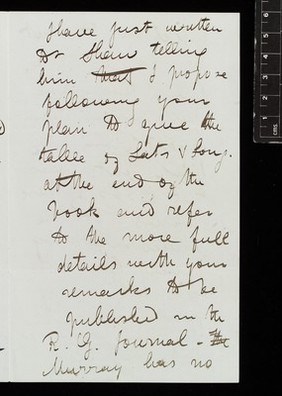 I have just written
Dr Shaw telling
him that I propose
following your
plan to give the
table of Lats & Long.
at the end of the
book and refer
to the more full
details with your
remarks to be
published in the
R. G. Journal - the
Murray has no